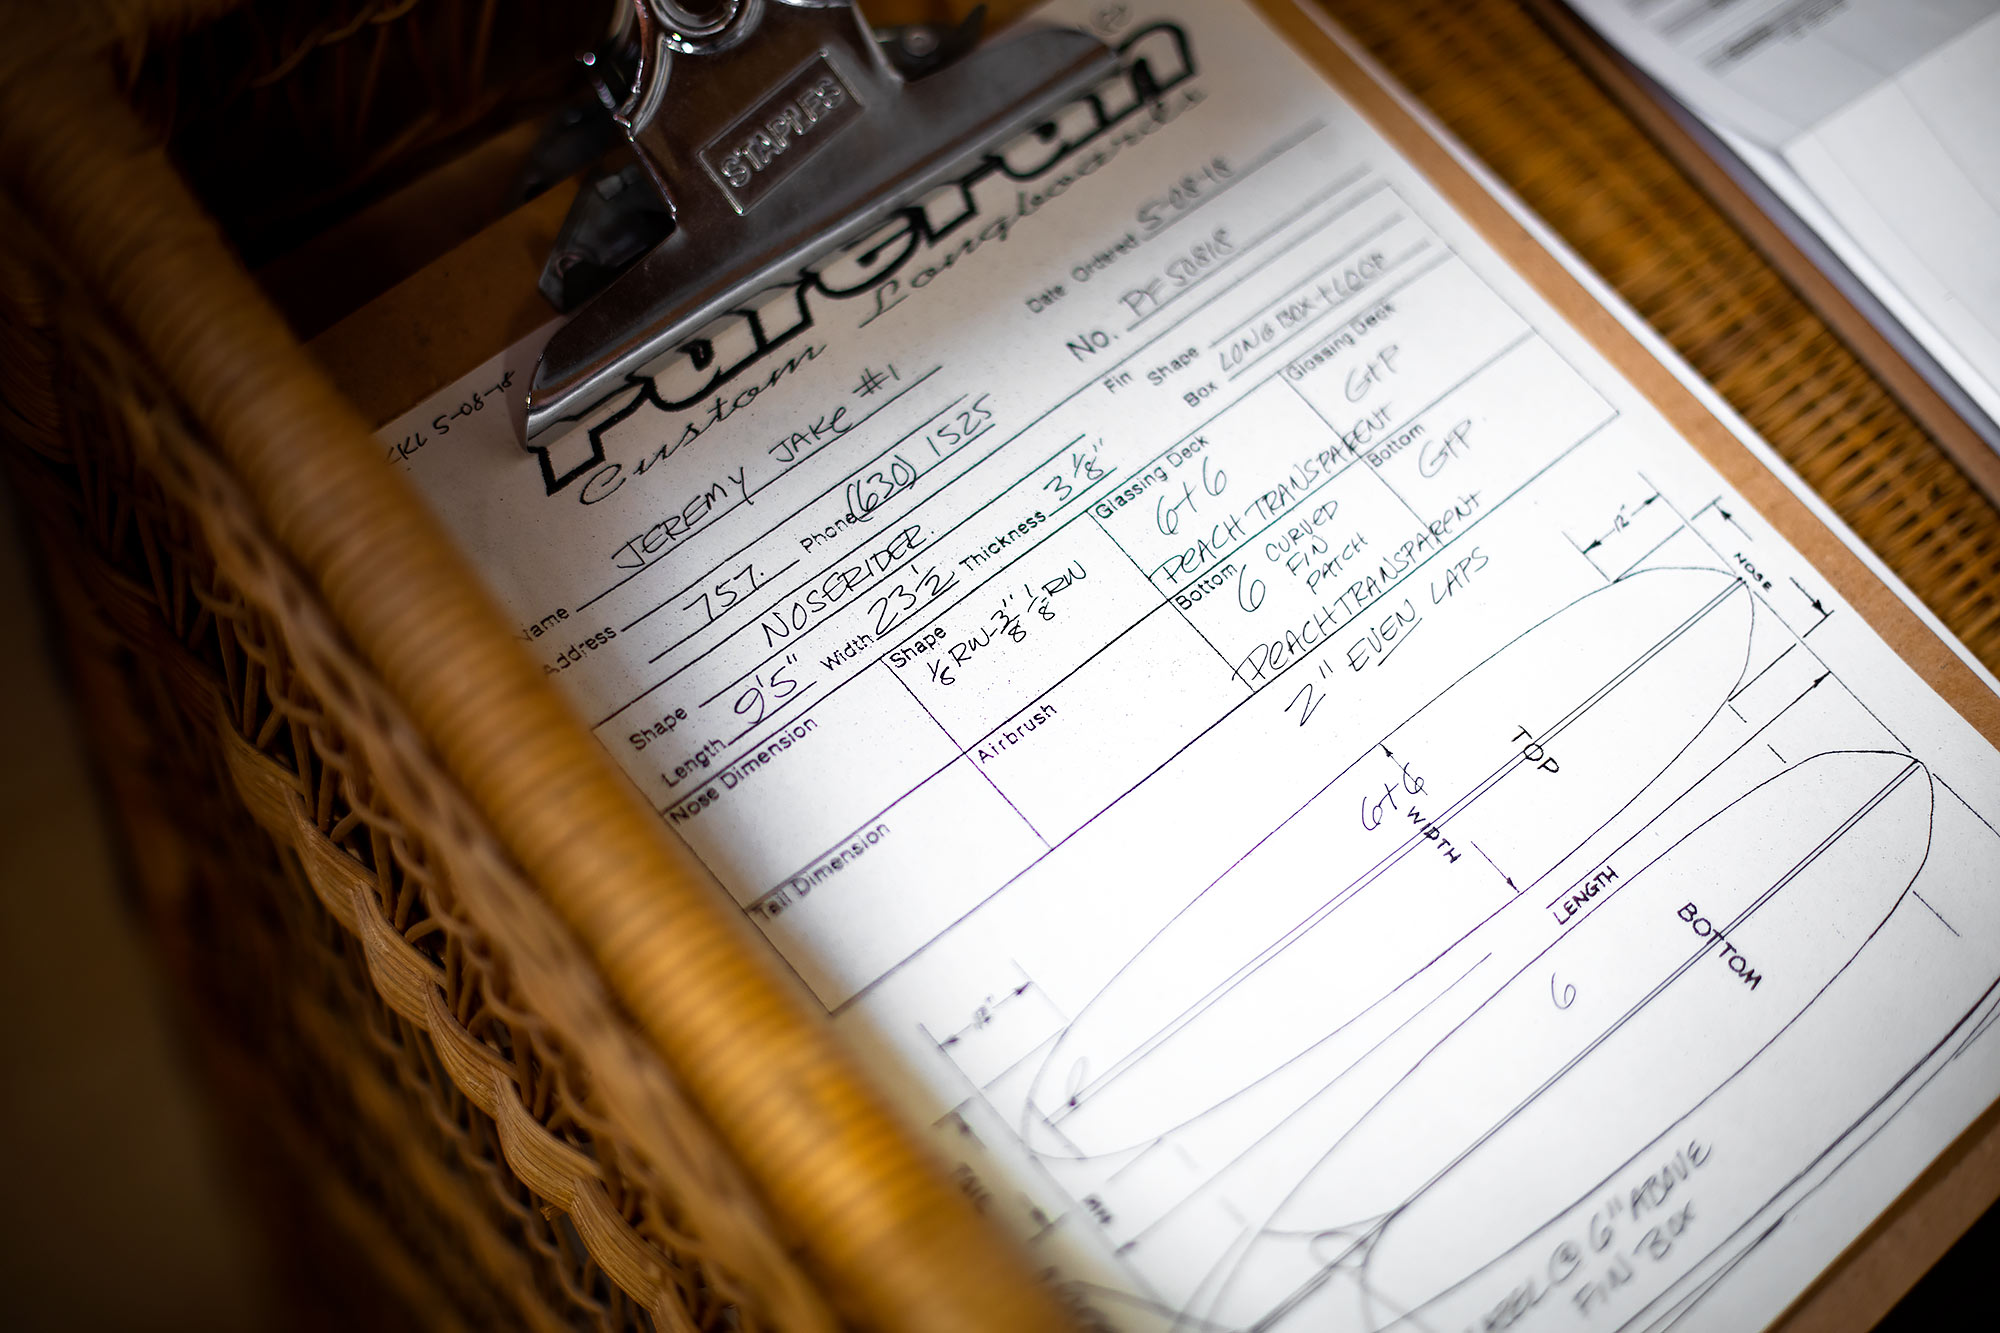 STAPLES
Custom Longboards
5-08-18
Date Ordered 5-08-18
No. PF50818
Name JEREMY JAKE #1
Address 757. Phone (630) 1525
Fin Shape
Shape NOSERIDER. Box LONG BOX
Length 9'5" Width 23 1/2 Thickness 3 1/8"
Nose Dimension
Shape
1/8 RW-3/8" 1/8 RW
Glassing Deck
6+6
PEACH TRANSPARENT
Glossing Deck
G+P
Tail Dimension
Airbrush
Bottom
6 CURVED
FIN
PATCH
PEACH TRANSPARENT
Bottom
G+P.
2" EVEN LAPS
12"
NOSE
TOP
6+6
WIDTH
LENGTH
BOTTOM
6
12"
@ 6" ABOVE
FIN BOX